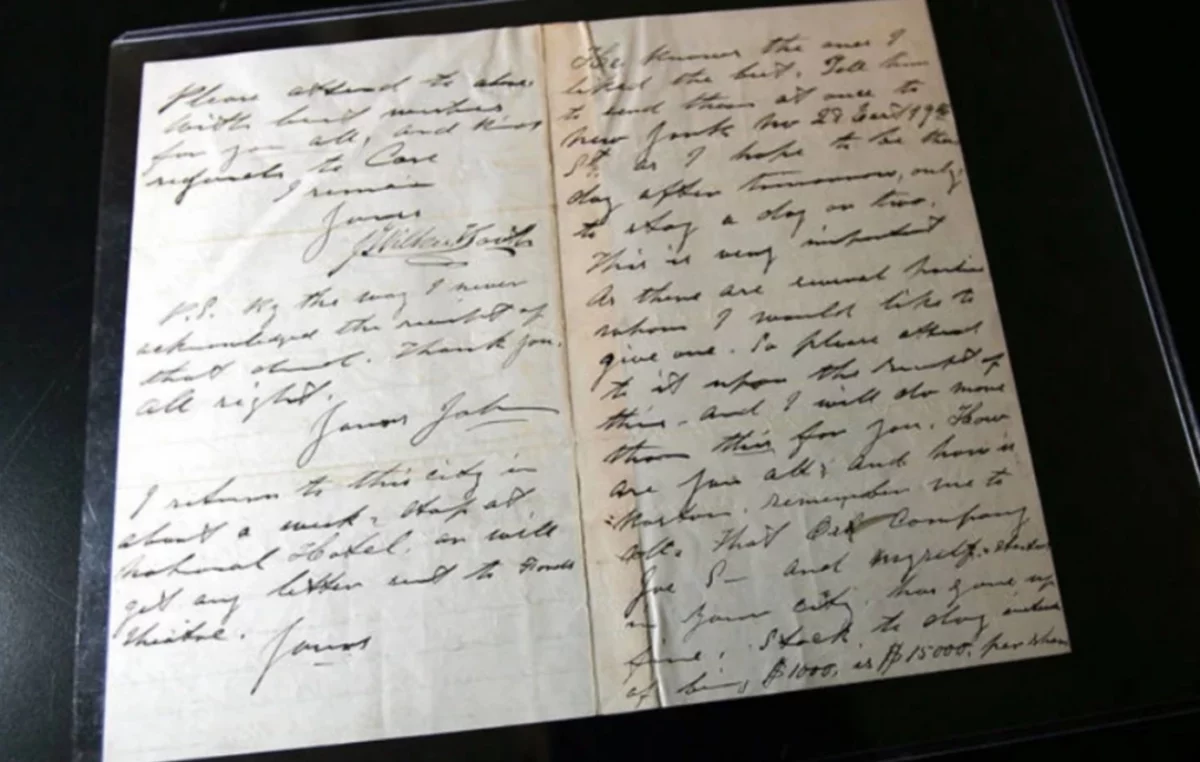 Please attend to above
With best wishes
for you all, and kind
regards to Care
I remain
Yours
J Wilkes Booth
P.S. By the way I never
acknowledged the receipt of
that deed. Thank you.
all right.
Yours John
I return to this city in
about a week. stop at
National Hotel. or will
get any letter sent to Fords
theatre.
Yours
He knows the ones I
liked the best. Tell him
to send them at once to
New York No 28 East 19th
St. as I hope to be there
day after tomorrow, only
to stay a day or two.
This is very important
As there are several parties
whom I would like to
give one. So please attend
to it upon the receipt of
this. and I will do more
than this for you. How
are you all; and how is
remember me to
all. That Oil Company
Joe S— and myself started
in your city. has gone up
fine; Stock to day instead
of being $1000. is $15000. per share